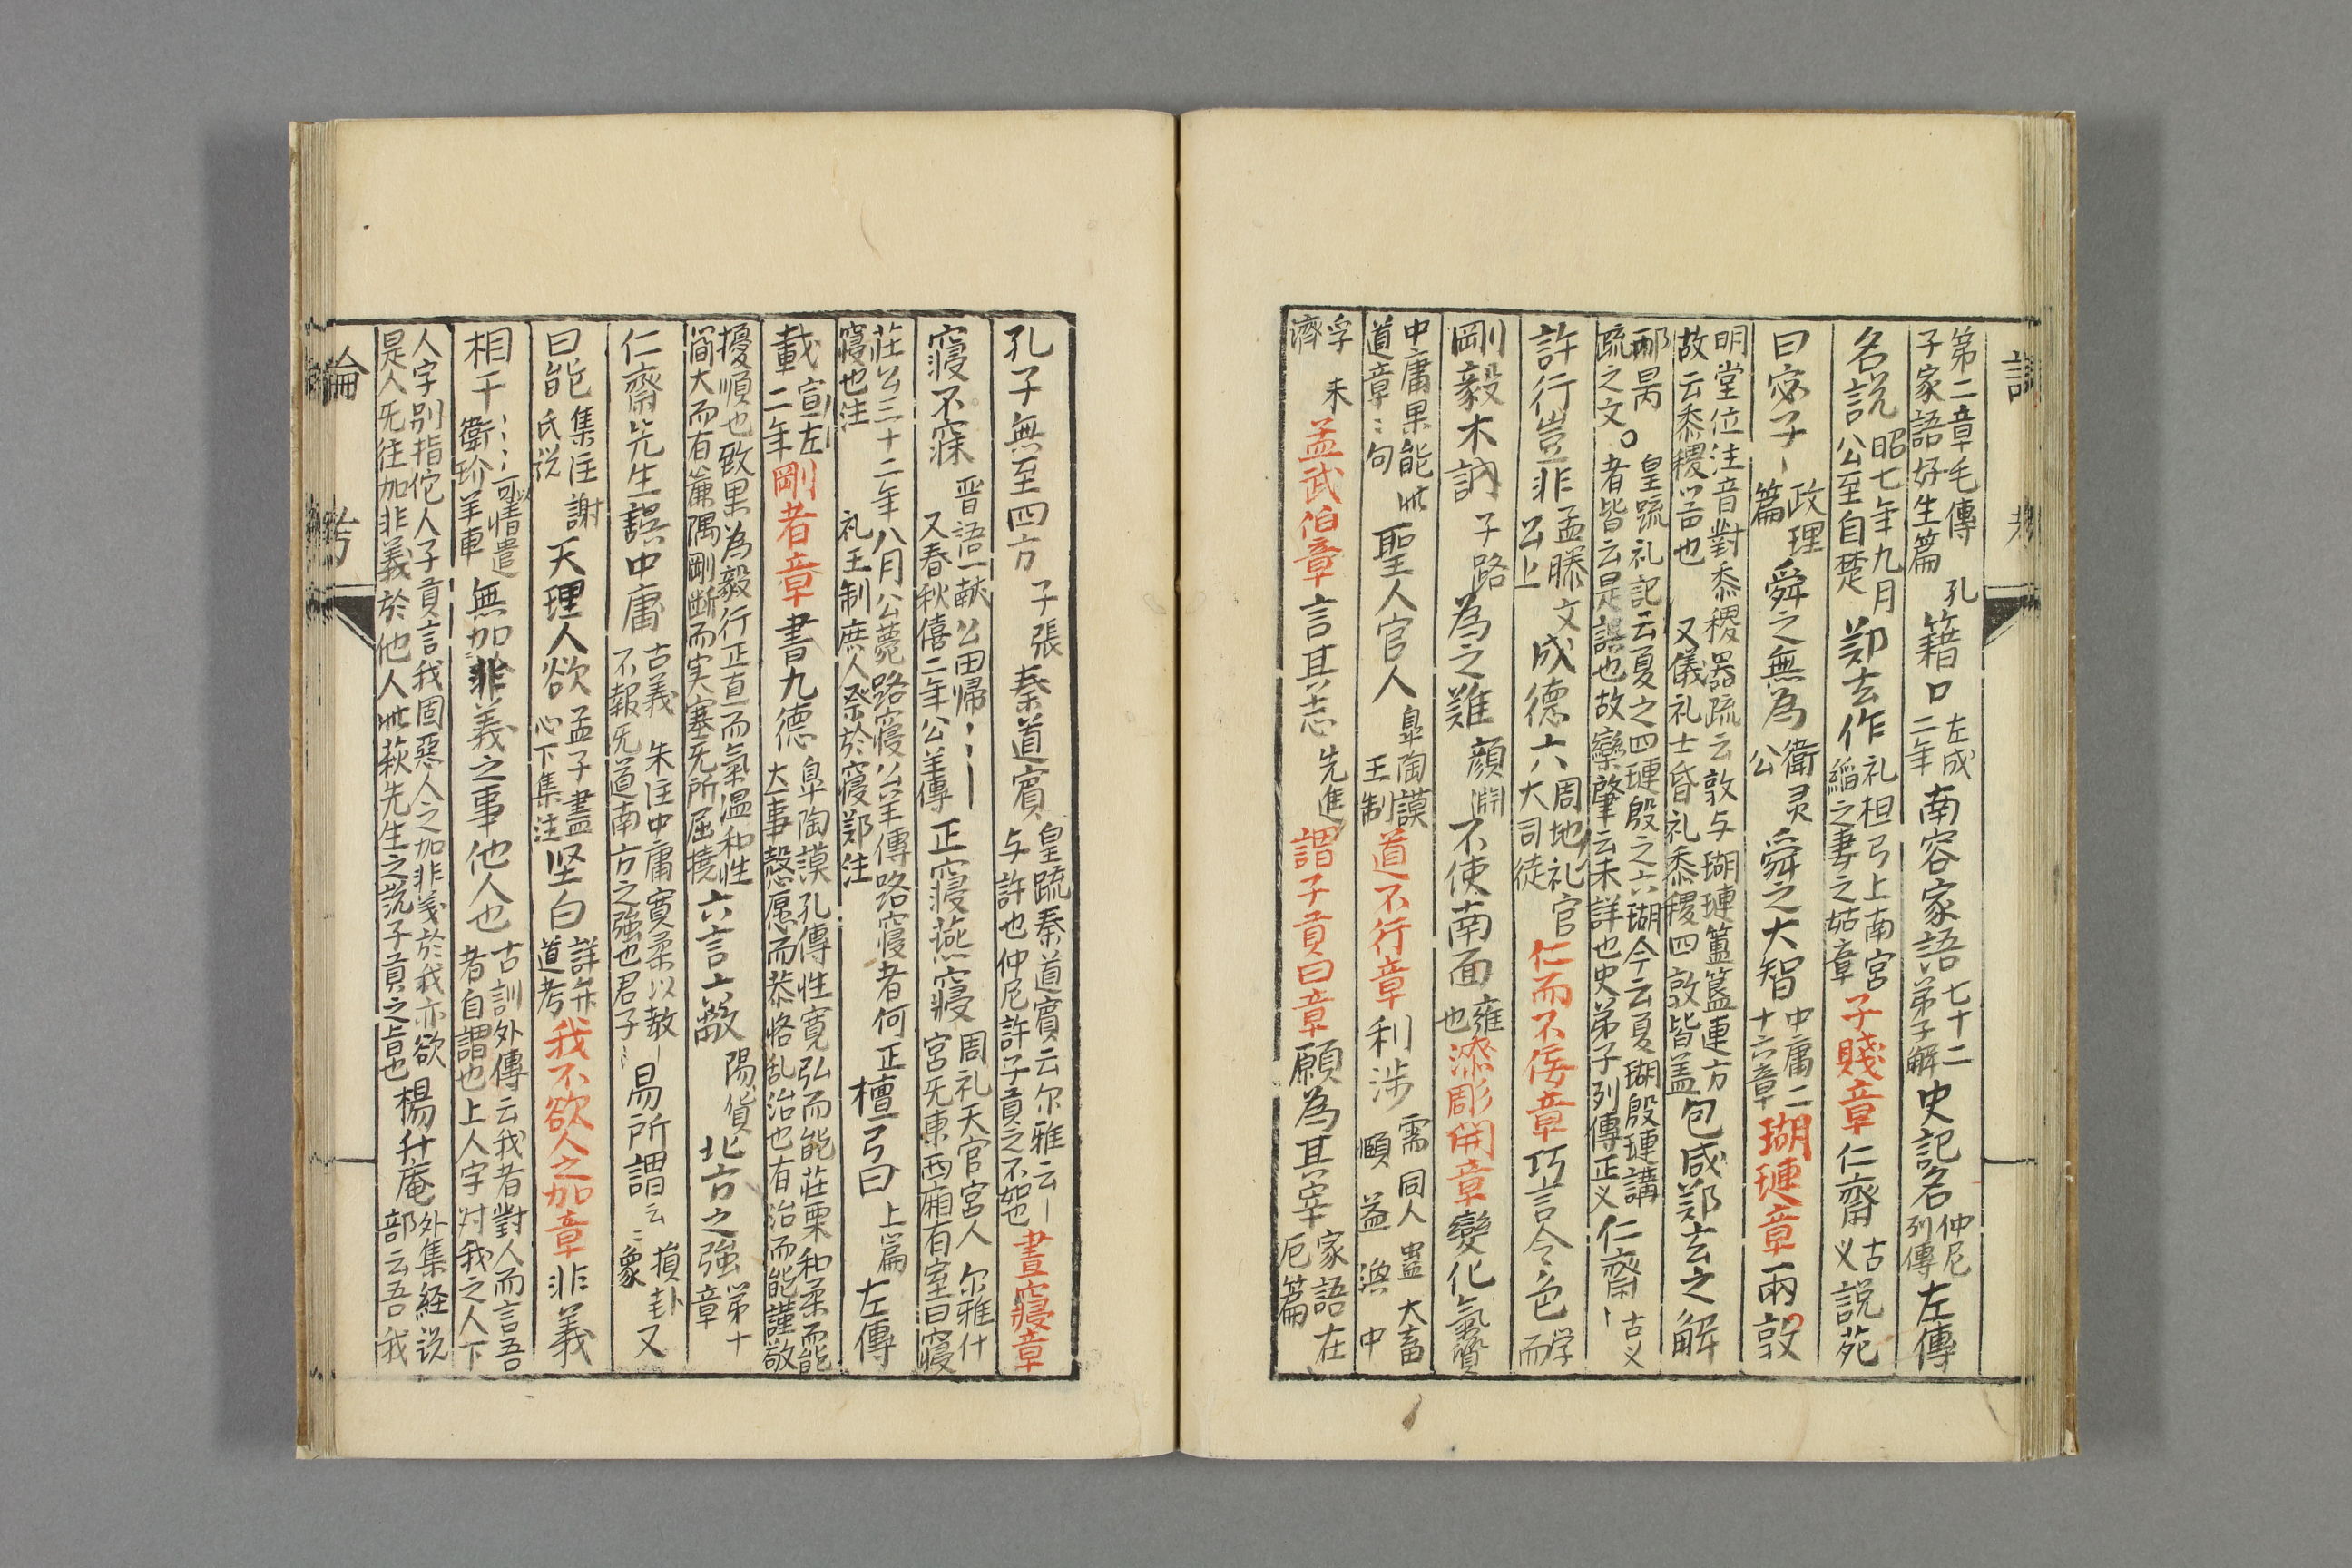 第二章毛傳孔
子家語好生篇籍口左成二年南容家語七十二弟子解史記名仲尼列傳左傳
名説昭七年九月公至自楚鄭玄作礼檀弓上南宮縚之妻之姑章子賤章仁齋古义説苑
曰宓子政理篇舜之無為衛灵公舜之大智中庸二十六章瑚璉章兩敦
明堂位注音對黍稷器疏云敦与瑚璉簠簋連方
故云黍稷器也又儀礼士昏礼黍稷四敦皆盖包咸鄭玄之解
邢昺疏之文。皇疏礼記云夏之四璉殷之六瑚今云夏瑚殷璉講
者皆云是誤也故欒肇云未詳也史弟子列傳正义仁齋古义
許行豈非孟滕文公上成德六周地礼官大司徒仁而不佞章巧言令色学而
剛毅木訥子路為之難顔淵不使南面雍也漆彫開章變化氣質
中庸果能此道章句聖人官人皐陶謨王制道不行章利渉需同人蠱大畜
頤益渙中
孚未濟孟武伯章言其志先進謂子貢曰章願為其宰家語在厄篇
孔子無至四方子張秦道賓皇疏秦道賓云尔雅云
与許也仲尼許子貢之不如也晝寢章
寢不寐晋語一献公田帰
又春秋僖二年公羊傳正寢燕寢周礼天官宮人尔雅什
宮无東西廂有室曰寢
莊公三十二年八月公薨路寢公羊傳路寢者何正
寢也注礼王制庶人祭於寢鄭注檀弓曰上篇左傳
載宣左二年剛者章書九德皐陶謨孔傳性寬弘而能莊栗和柔而能
立事慤愿而恭恪乱治也有治而能謹敬
擾順也致果為毅行正直而氣温和性
簡大而有廉隅剛断而実塞无所屈撓六言六蔽陽貨北方之強第十章
仁齋先生誤中庸古義朱注中庸寛柔以教
不報无道南方之強也君子易所謂云損卦又彖
曰能集注謝氏説天理人欲孟子盡心下集注坚白詳弁道考我不欲人之加章非義
相干可情遣衛玠羊車無加非義之事他人也古訓外傳云我者對人而言吾
者自謂也上人字対我之人下
人字别指佗人子貢言我固惡人之加非義於我亦欲
是人无往加非義於他人此萩先生之説子貢之旨也楊升庵外集経説部云吾我
論
考